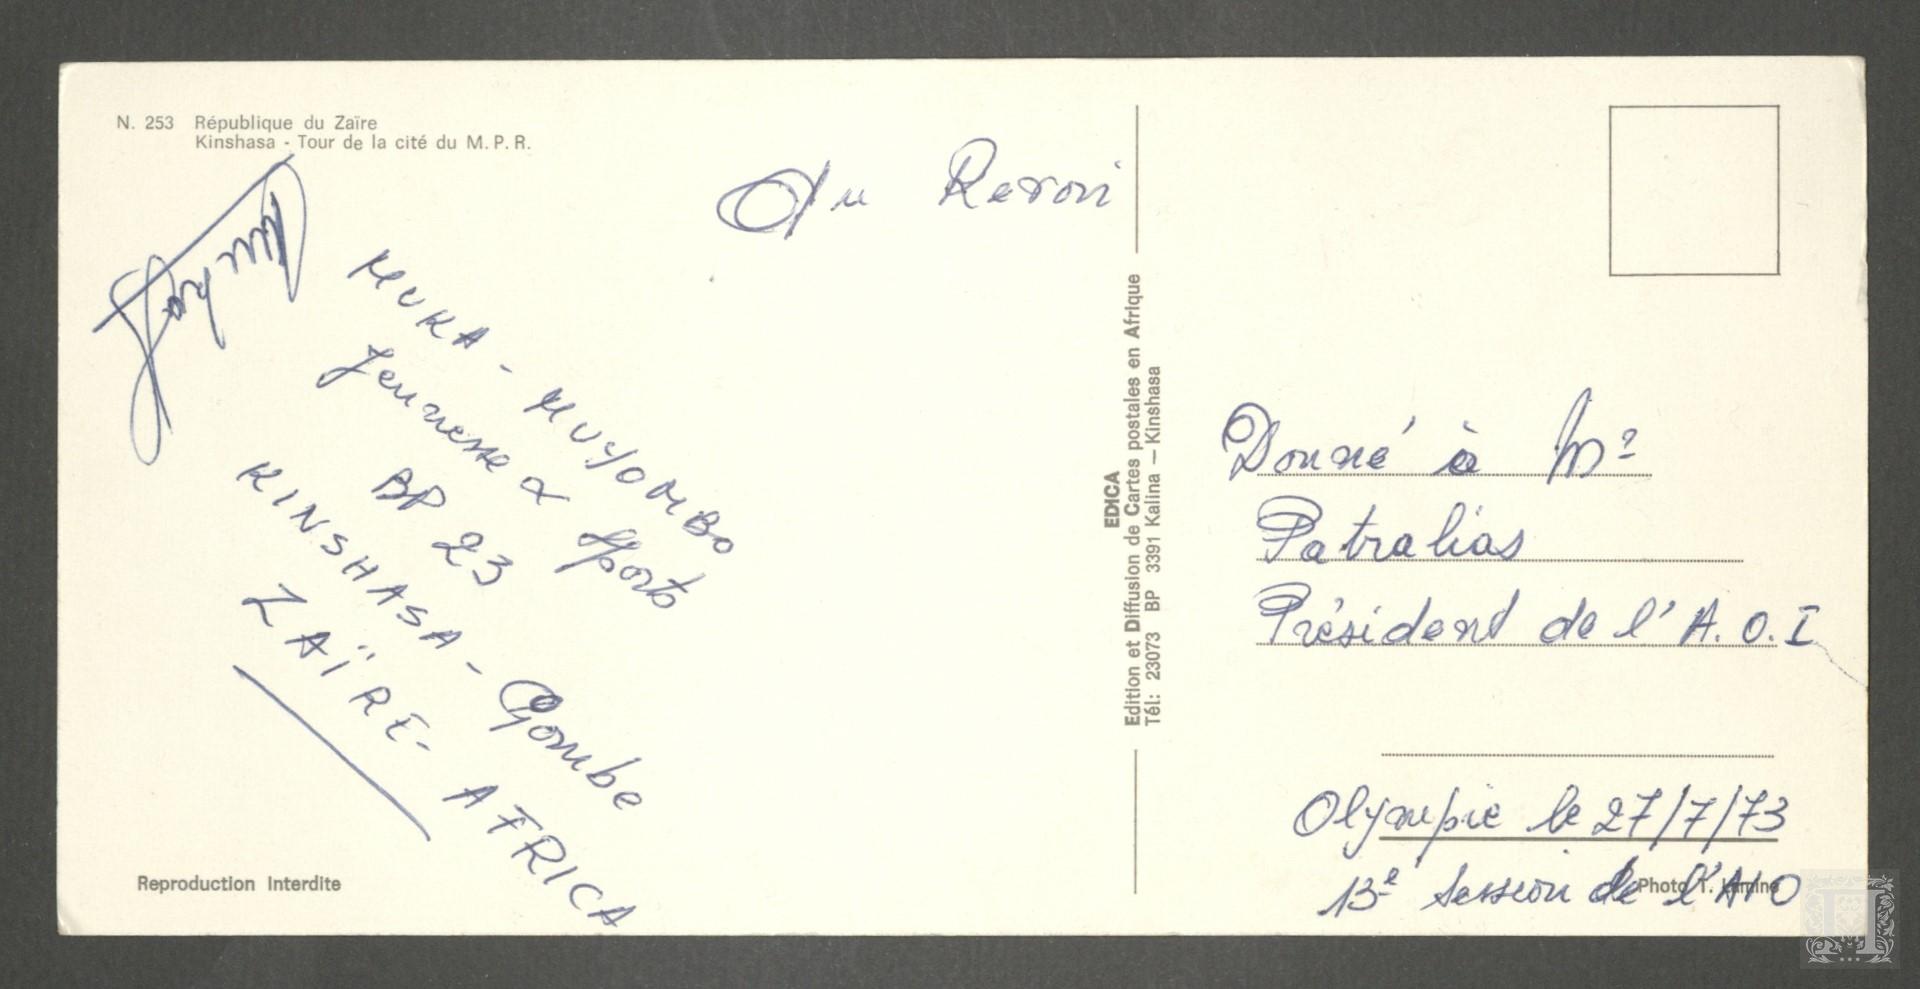 N. 253 République du Zaïre
Kinshasa - Tour de la cité du M.P.R.
Au Revori
MUKA - MUYOMBO
Jeunesse & Sports
BP 23
KINSHASA - Gombe
ZAÏRE - AFRICA
Reproduction Interdite
EDICA
Edition et Diffusion de Cartes postales en Afrique
Tél.: 23073 BP 3391 Kalina – Kinshasa
Donné à Mr
Patralias
Président de l'A.O.I
Olympie le 27/7/73
13e session de l'AIO
Photo T.